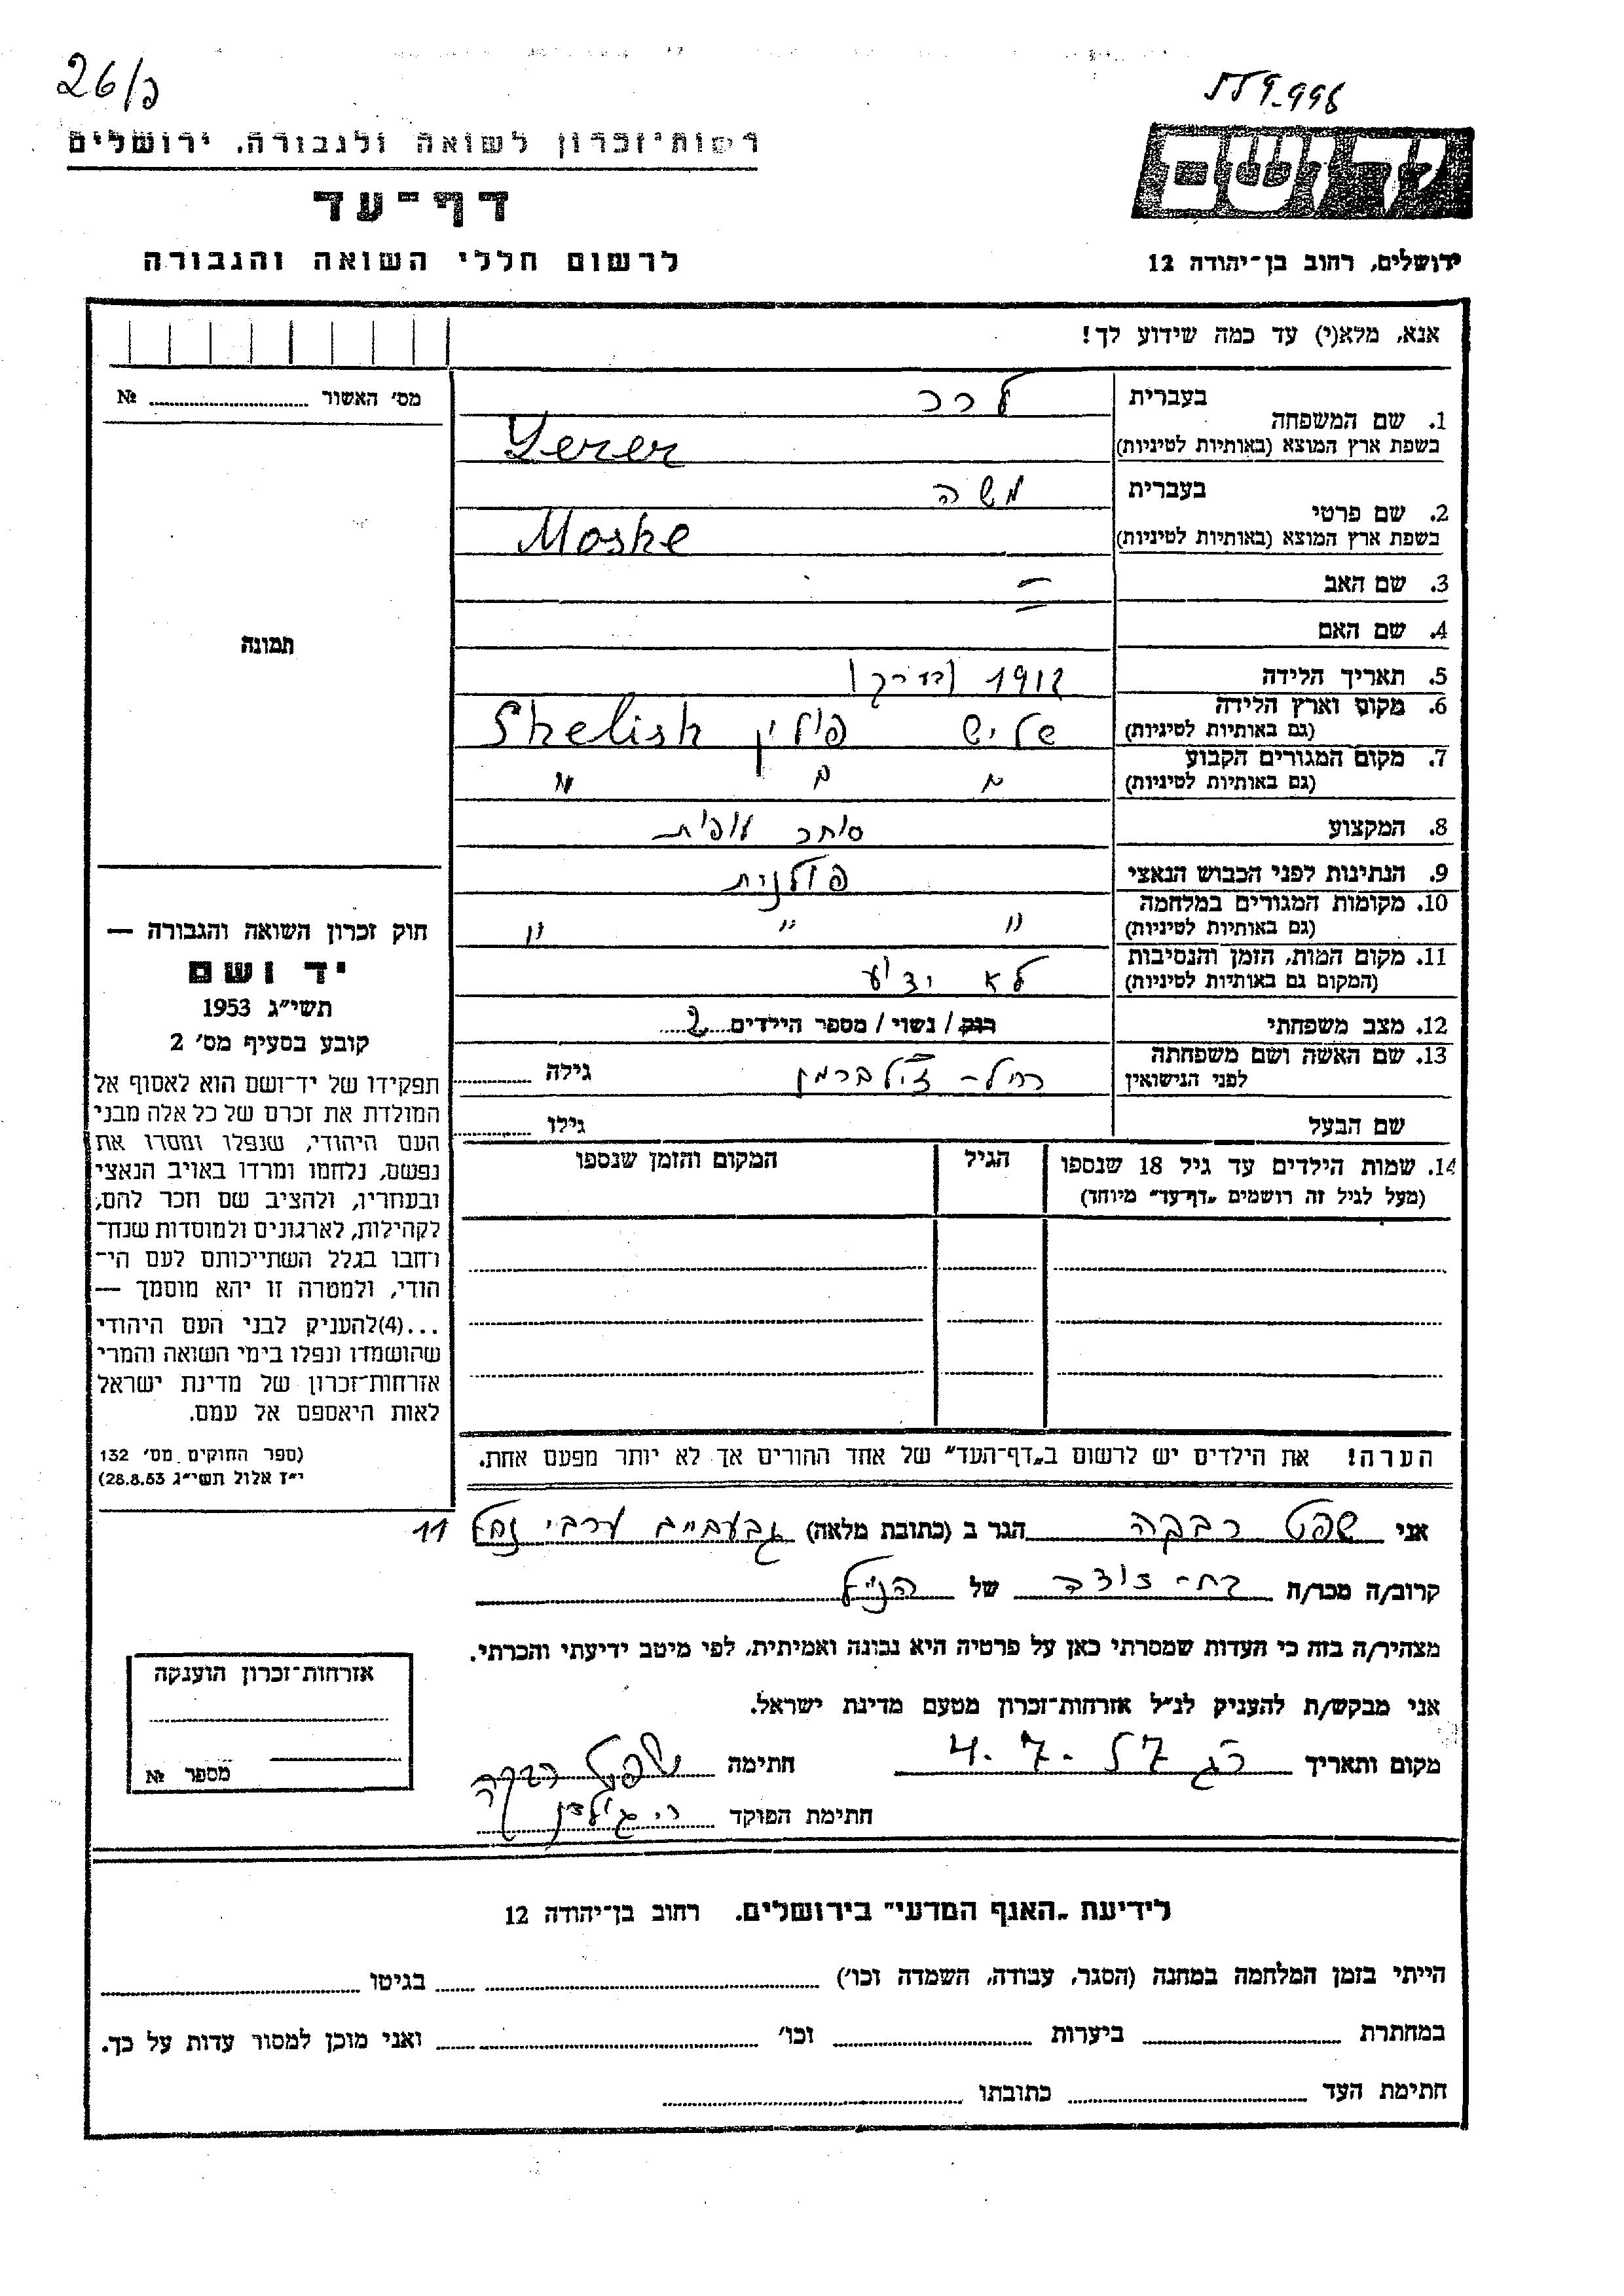 26/כ
559-996
רשות־זכרון לשואה ולגבורה, ירושלים
יד ושם
דף־עד
לרשום חללי השואה והגבורה
ירושלים, רחוב בן־יהודה 12
אנא, מלא(י) עד כמה שידוע לך!
מס׳ האשור № 
1. שם המשפחה בעברית לרר
בשפת ארץ המוצא (באותיות לטיניות) Lerer
2. שם פרטי בעברית משה
בשפת ארץ המוצא (באותיות לטיניות) Moshe
3. שם האב –
4. שם האם –
תמונה
5. תאריך הלידה 1912 (בערך)
6. מקום וארץ הלידה (גם באותיות לטיניות) שליש פולין Shelish
7. מקום המגורים הקבוע (גם באותיות לטיניות) " " "
8. המקצוע סוחר
9. הנתינות לפני הכבוש הנאצי פולנית
10. מקומות המגורים במלחמה (גם באותיות לטיניות) " " "
11. מקום המות, הזמן והנסיבות (המקום גם באותיות לטיניות) לא ידוע
12. מצב משפחתי רווק / נשוי / מספר הילדים 2
13. שם האשה ושם משפחתה לפני הנישואין רחל זילברמן גילה
שם הבעל גילו
14. שמות הילדים עד גיל 18 שנספו הגיל המקום והזמן שנספו
(מעל לגיל זה רושמים „דף־עד" מיוחד)
חוק זכרון השואה והגבורה —
יד ושם
תשי״ג 1953
קובע בסעיף מס׳ 2
תפקידו של יד־ושם הוא לאסוף אל
המולדת את זכרם של כל אלה מבני
העם היהודי, שנפלו ומסרו את
נפשם, נלחמו ומרדו באויב הנאצי
ובעוזריו, ולהציב שם וזכר להם,
לקהילות, לארגונים ולמוסדות שנח־
רבו בגלל השתייכותם לעם הי־
הודי, ולמטרה זו יהא מוסמך —
...(4)להעניק לבני העם היהודי
שהושמדו ונפלו בימי השואה והמרי
אזרחות־זכרון של מדינת ישראל
לאות היאספם אל עמם.
(ספר החוקים מס׳ 132
י״ז אלול תשי״ג 28.8.53)
הערה! את הילדים יש לרשום ב„דף־העד" של אחד ההורים אך לא יותר מפעם אחת.
אני שפט רבקה הגר ב (כתובת מלאה) גבעתיים ערבי נחל 11
קרוב/ה מכר/ה בת־דודה של הנ״ל
מצהיר/ה בזה כי העדות שמסרתי כאן על פרטיה היא נכונה ואמיתית, לפי מיטב ידיעתי והכרתי.
אני מבקש/ת להעניק לנ״ל אזרחות־זכרון מטעם מדינת ישראל.
מקום ותאריך רג 4.7.57 חתימה שפט רבקה
חתימת הפוקד
אזרחות־זכרון הוענקה
מספר №
לידיעת „האגף המדעי" בירושלים. רחוב בן־יהודה 12
הייתי בזמן המלחמה במחנה (הסגר, עבודה, השמדה וכו׳) בגיטו
במחתרת ביערות וכו׳ ואני מוכן למסור עדות על כך.
חתימת העד כתובתו